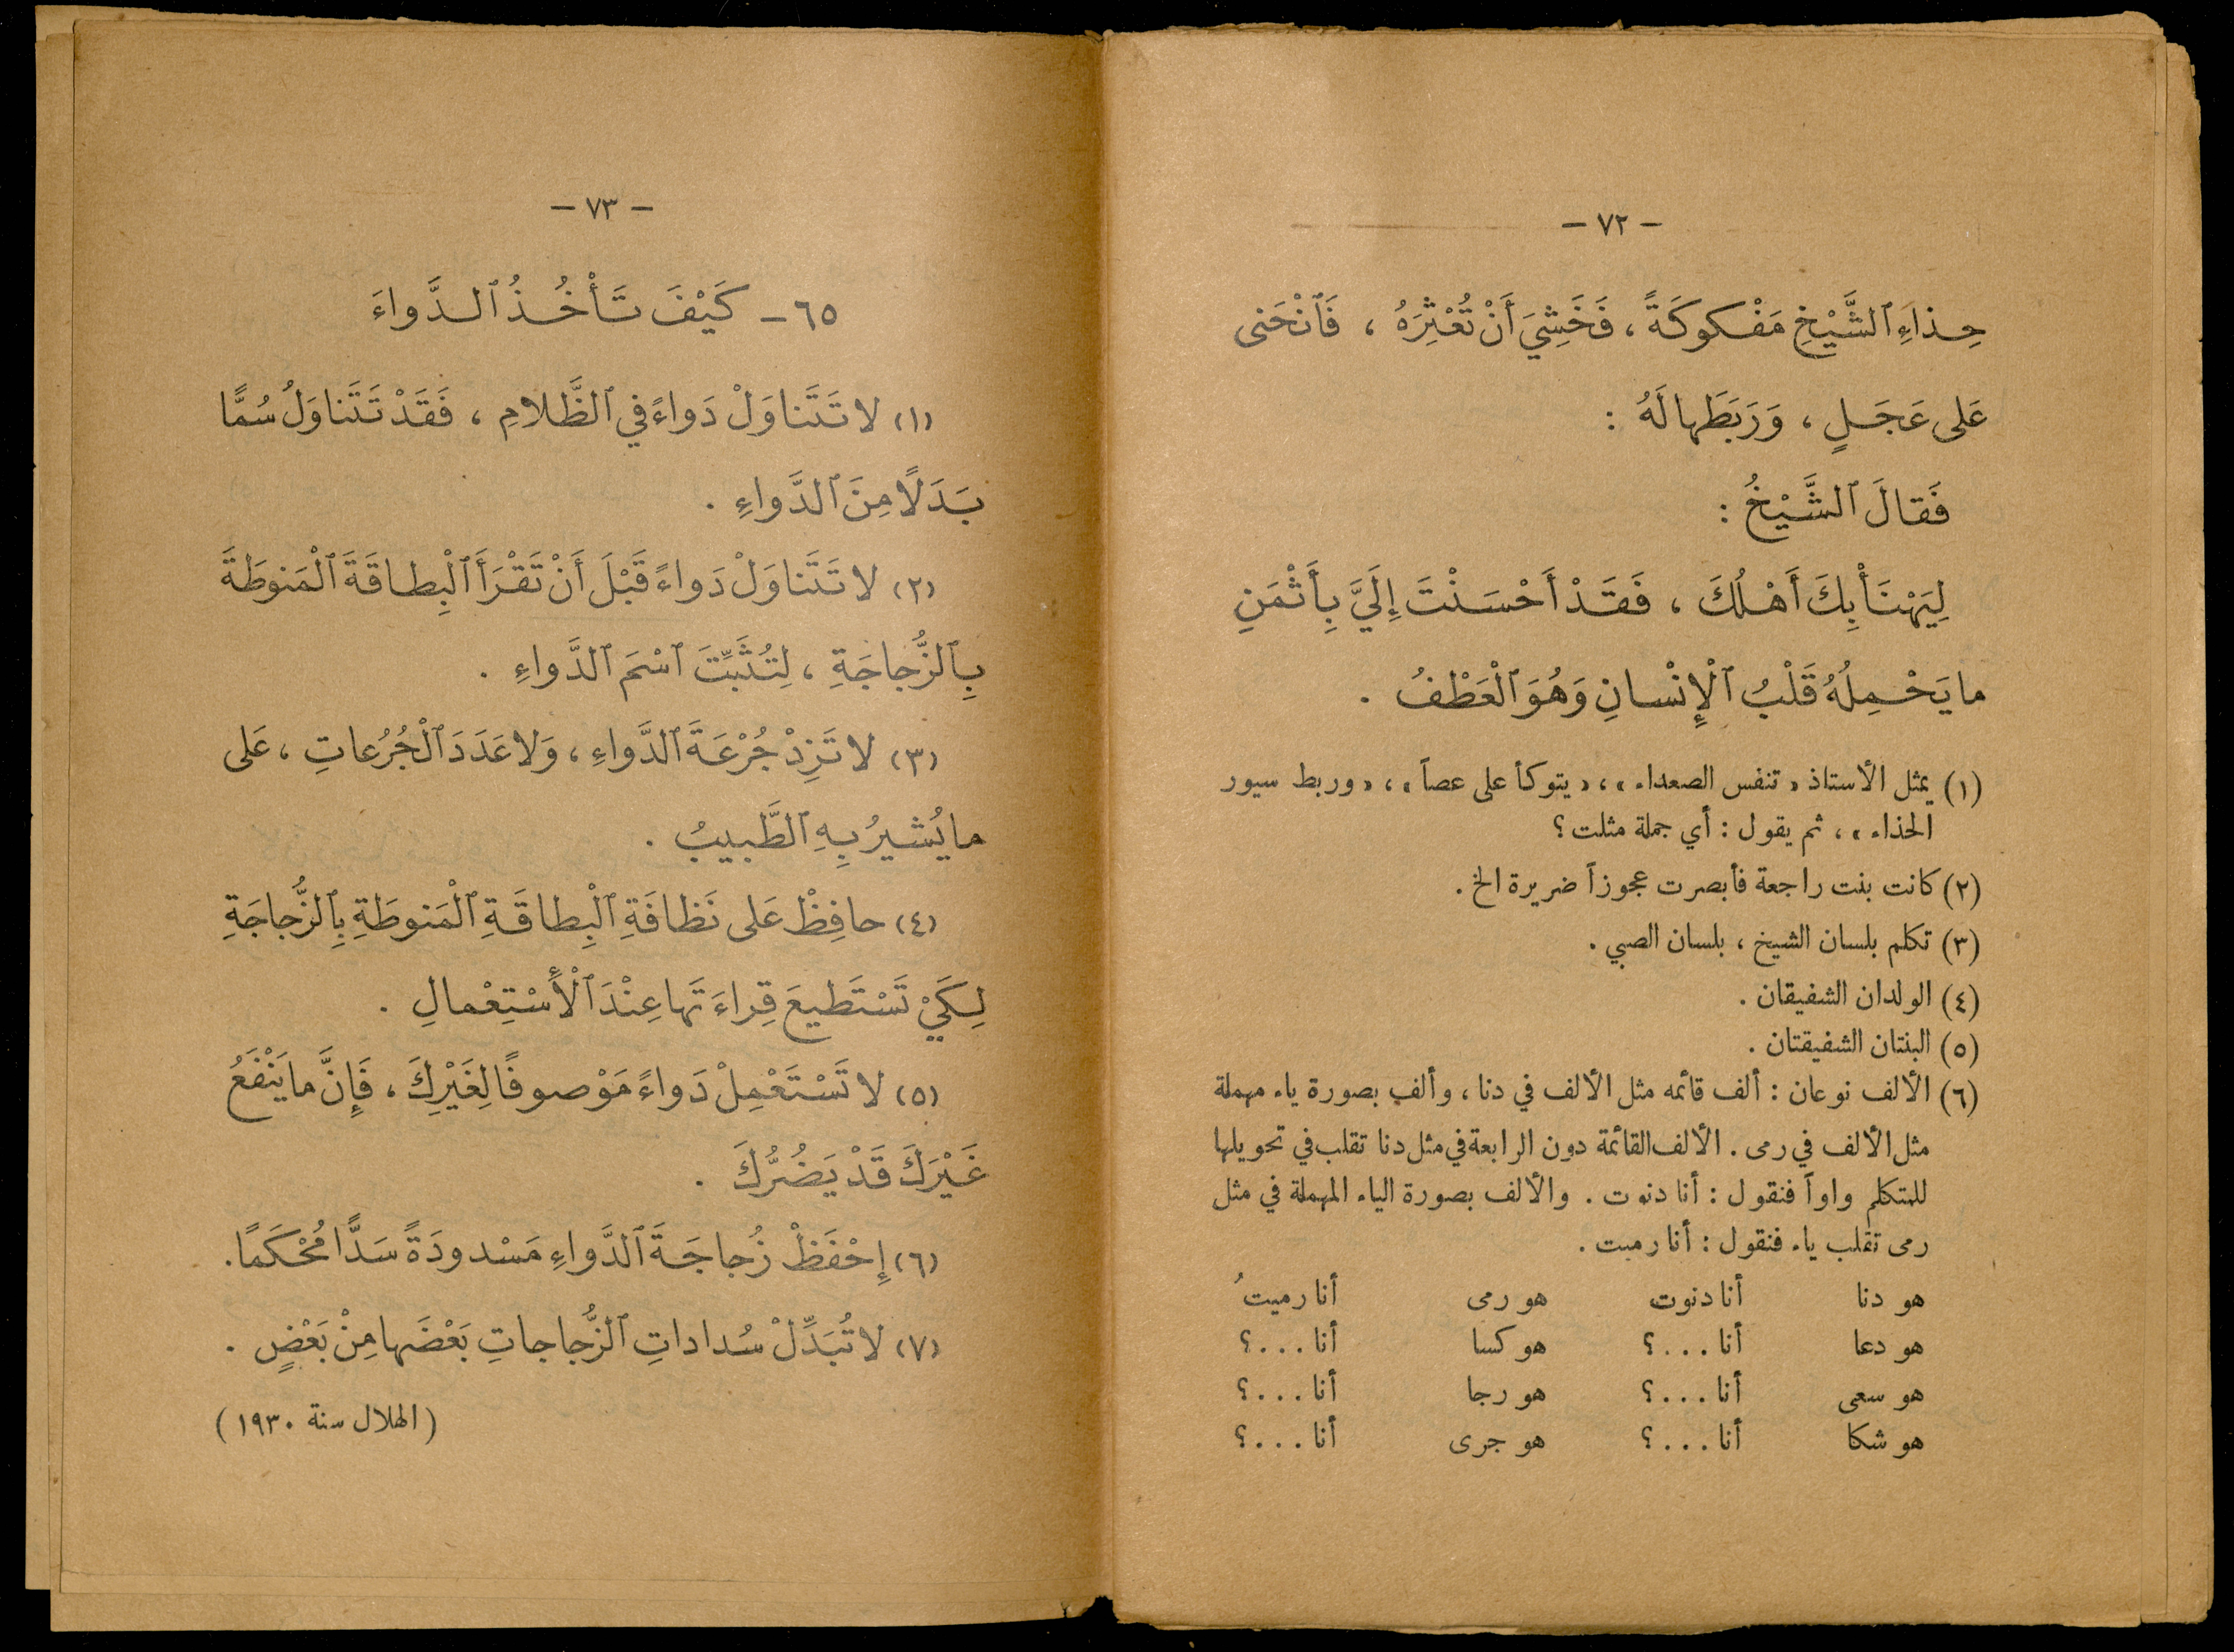 — ٧٢ —
حِذاءِ ٱلشَّيْخِ مَفْكوكَةً ، فَخَشِيَ أَنْ تُعْثِرَهُ ، فَٱنْحَنى
عَلى عَجَلٍ ، وَرَبَطَها لَهُ :
فَقالَ ٱلشَّيْخُ :
لِيَهْنَأْ بِكَ أَهْلُكَ ، فَقَدْ أَحْسَنْتَ إِلَيَّ بِأَثْمَنِ
ما يَحْمِلُهُ قَلْبُ ٱلْإِنْسانِ وَهُوَ ٱلْعَطْفُ .
(١) يمثل الأستاذ « تنفس الصعداء » ، « يتوكأ على عصاً » ، « وربط سيور
الحذاء » ، ثم يقول : أي جملة مثلت ؟
(٢) كانت بنت راجعة فأبصرت عجوزاً ضريرة الخ .
(٣) تكلم بلسان الشيخ ، بلسان الصبي .
(٤) الولدان الشفيقان .
(٥) البنتان الشفيقتان .
(٦) الألف نوعان : ألف قائمه مثل الألف في دنا ، وألف بصورة ياء مهملة
مثل الألف في رمى . الألف القائمة دون الرابعة في مثل دنا تقلب في تحويلها
للمتكلم واواً فنقول : أنا دنوت . والألف بصورة الياء المهملة في مثل
رمى تقلب ياء فنقول : أنا رميت .
هو دنا أنا دنوت هو رمى أنا رميتُ
هو دعا أنا . . . ؟ هو كسا أنا . . . ؟
هو سعى أنا . . . ؟ هو رجا أنا . . . ؟
هو شكا أنا . . . ؟ هو جرى أنا . . . ؟
— ٧٣ —
٦٥ - كَيْفَ تَأْخُذُ ٱلدَّواءَ
(١) لا تَتَناوَلْ دَواءً في ٱلظَّلامِ ، فَقَدْ تَتَناوَلُ سُمًّا
بَدَلًا مِنَ ٱلدَّواءِ .
(٢) لا تَتَناوَلْ دَواءً قَبْلَ أَنْ تَقْرَأَ ٱلْبِطاقَةَ ٱلْمَنوطَةَ
بِٱلزُّجاجَةِ ، لِتُثَبِّتَ ٱسْمَ ٱلدَّواءِ .
(٣) لا تَزِدْ جُرْعَةَ ٱلدَّواءِ ، وَلا عَدَدَ ٱلْجُرُعاتِ ، عَلى
ما يُشيرُ بِهِ ٱلطَّبيبُ .
(٤) حافِظْ عَلى نَظافَةِ ٱلْبِطاقَةِ ٱلْمَنوطَةِ بِٱلزُّجاجَةِ
لِكَيْ تَسْتَطيعَ قِراءَتَها عِنْدَ ٱلْأُسْتِعْمالِ .
(٥) لا تَسْتَعْمِلْ دَواءً مَوْصوفًا لِغَيْرِكَ ، فَإِنَّ ما يَنْفَعُ
غَيْرَكَ قَدْ يَضُرُّكَ .
(٦) إِحْفَظْ زُجاجَةَ ٱلدَّواءِ مَسْدودَةً سَدًّا مُحْكَمًا .
(٧) لا تُبَدِّلْ سُداداتِ ٱلزُّجاجاتِ بَعْضَها مِنْ بَعْضٍ .
( الهلال سنة ١٩٣٠ )